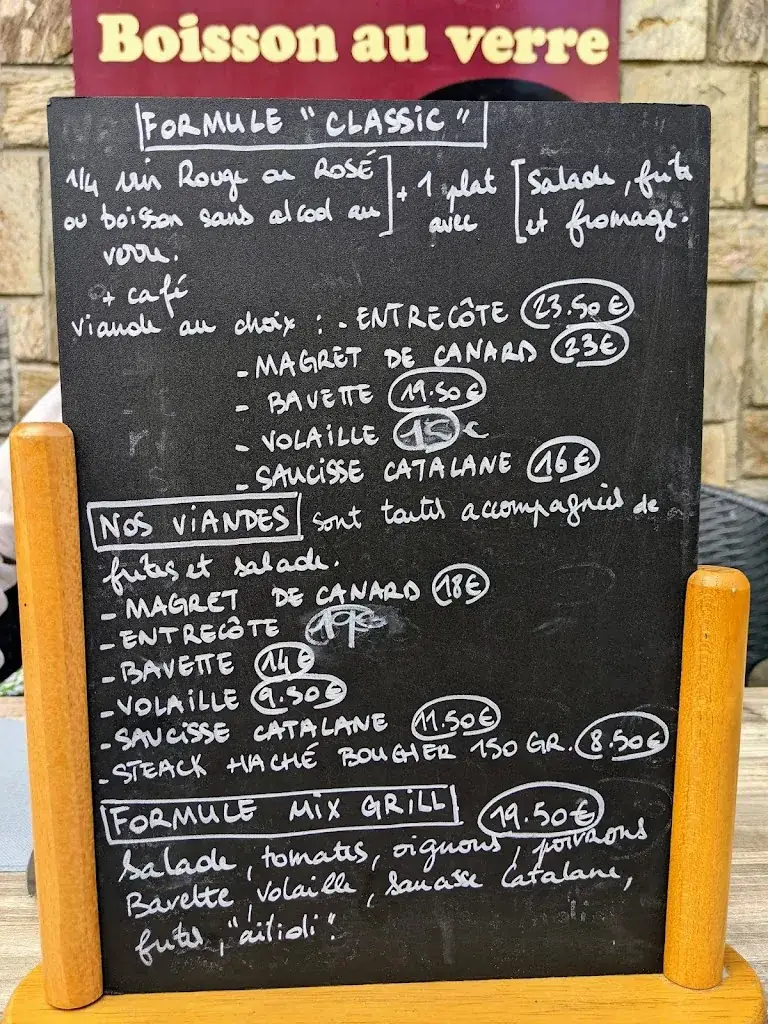 Boisson au verre
FORMULE "CLASSIC"
1/4 vin Rouge ou ROSÉ
ou boisson sans alcool au
verre.
+ 1 plat
avec
Salade, frite
et fromage.
+ café
viande au choix : - ENTRECÔTE 23.50€
- MAGRET DE CANARD 23€
- BAVETTE 19.50€
- VOLAILLE 15€
- SAUCISSE CATALANE 16€
NOS VIANDES sont toutes accompagnées de
frites et salade.
- MAGRET DE CANARD 18€
- ENTRECÔTE 19€
- BAVETTE 14€
- VOLAILLE 9.50€
- SAUCISSE CATALANE 11.50€
- STEACK HACHÉ BOUGHER 150 GR. 8.50€
FORMULE MIX GRILL 19.50€
Salade, tomates, oignons, poivrons
Bavette, volaille, saucisse Catalane,
frites, "ailioli".